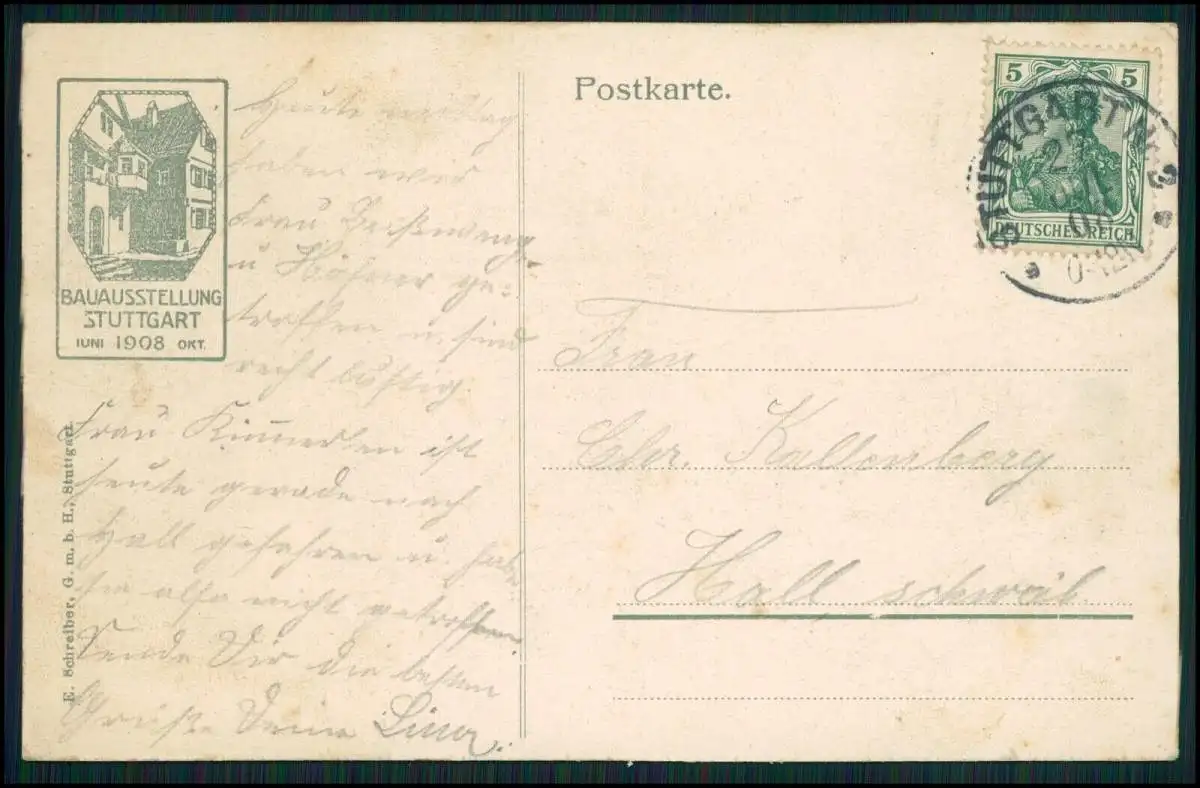 Postkarte.
5 5
DEUTSCHES REICH
STUTTGART No. 2
BAUAUSSTELLUNG
STUTTGART
JUNI 1908 OKT.
E. Schreiber, G. m. b. H., Stuttgart
Heute
haben wir
Frau
u. Höfner ge-
troffen u. sind
recht lustig.
Frau ist
heute gerade nach
Hall gefahren u. habe
sie also nicht getroffen
Sende Dir die besten
Grüße Deine Lina.
Frau
Chr. Kallenberg
Hall schwäb.